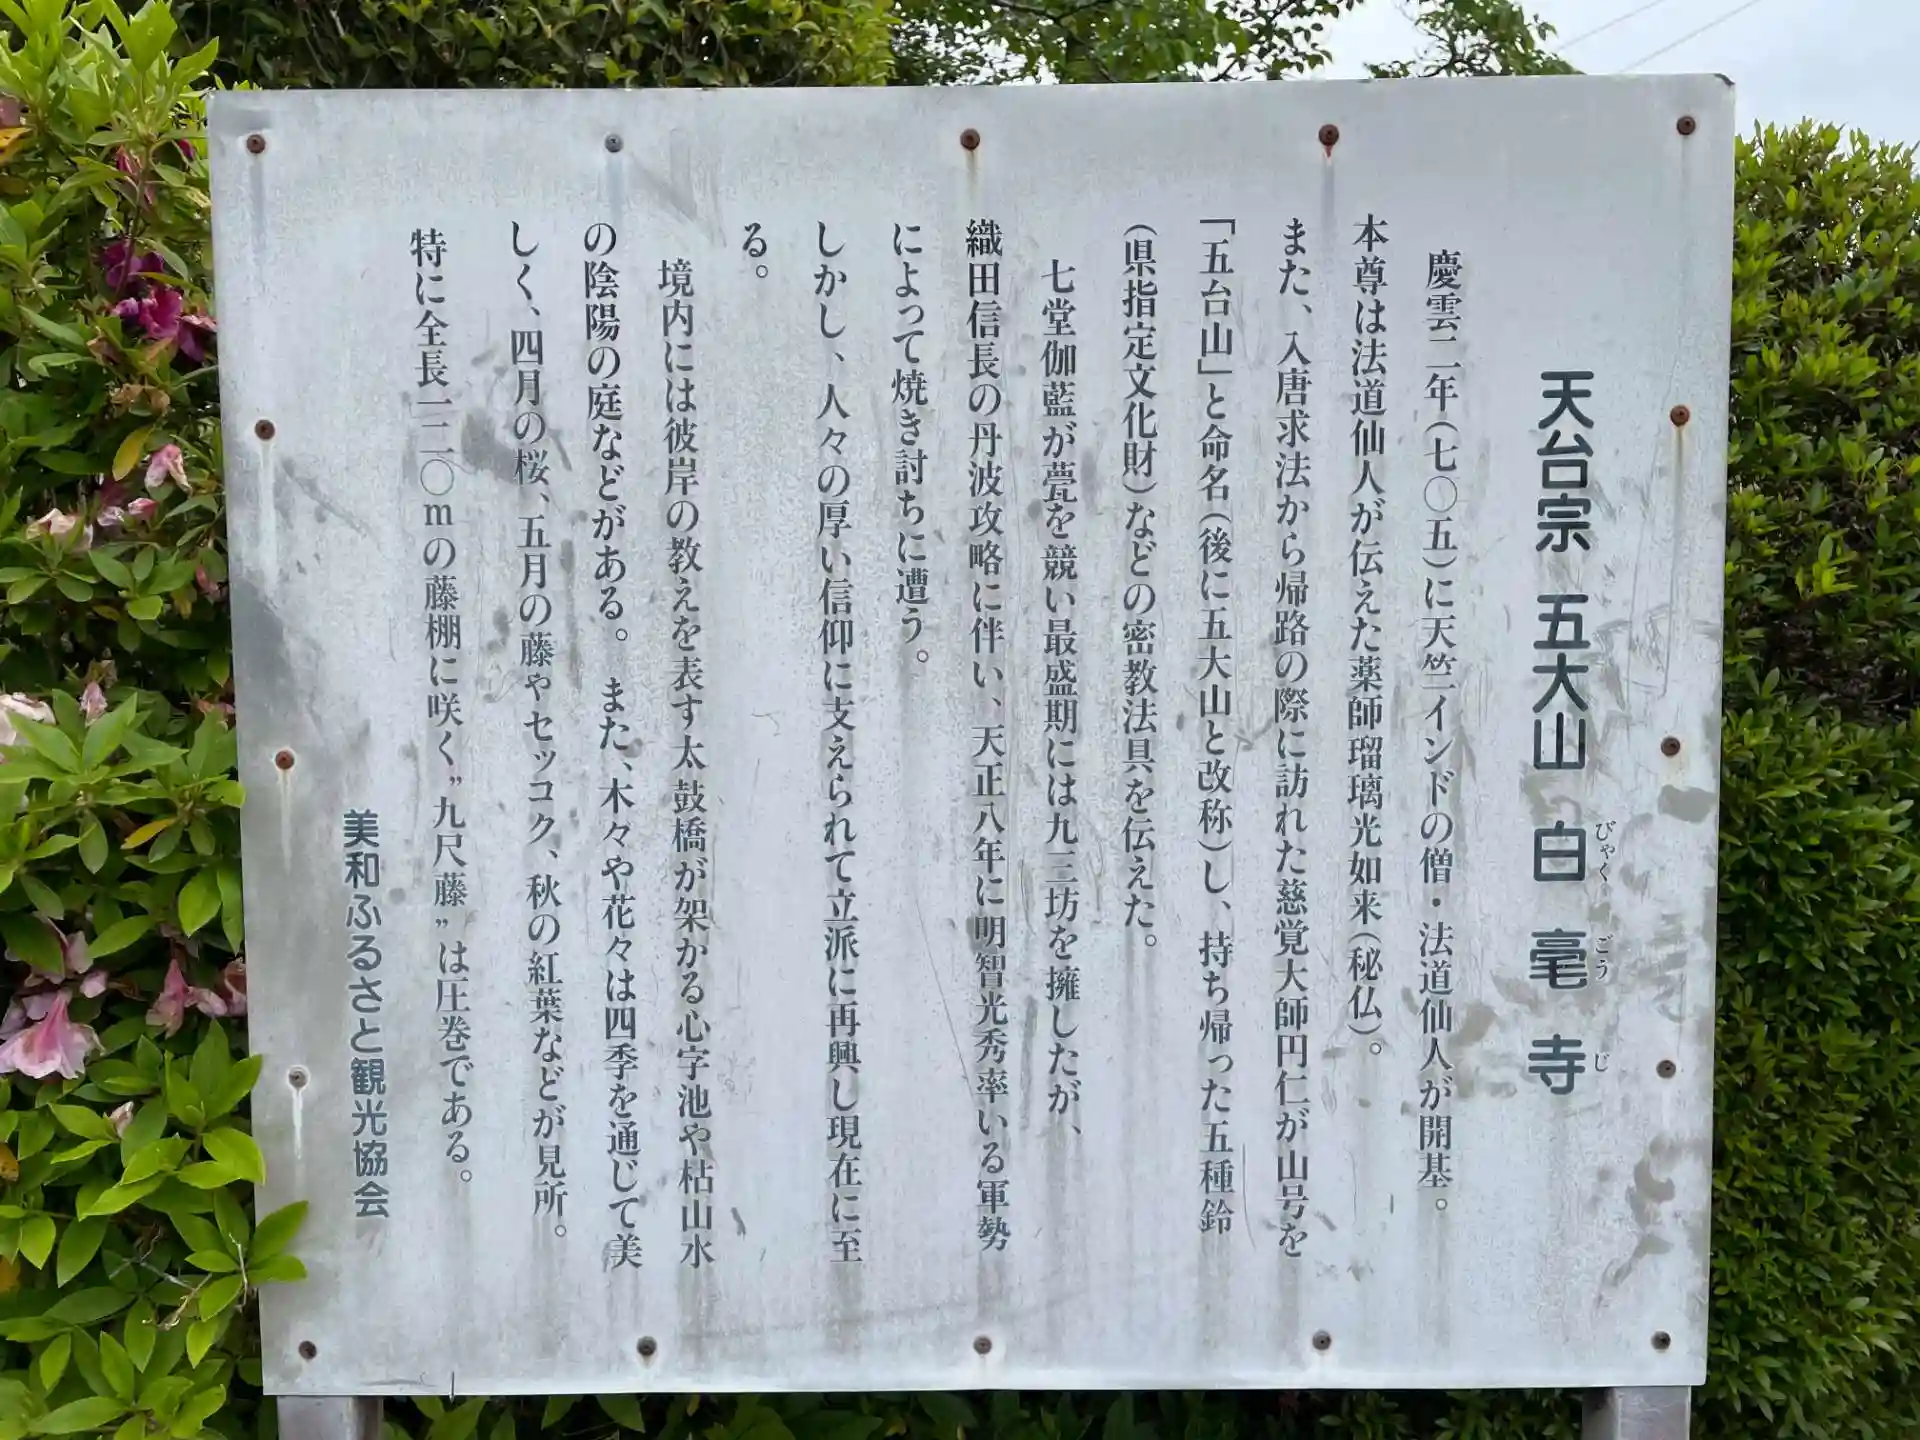 天台宗 五大山 白毫寺
びゃく ごう じ
慶雲二年(七〇五)に天竺インドの僧・法道仙人が開基。
本尊は法道仙人が伝えた薬師瑠璃光如来(秘仏)。
また、入唐求法から帰路の際に訪れた慈覚大師円仁が山号を
「五台山」と命名(後に五大山と改称)し、持ち帰った五種鈴
(県指定文化財)などの密教法具を伝えた。
七堂伽藍が甍を競い最盛期には九三坊を擁したが、
織田信長の丹波攻略に伴い、天正八年に明智光秀率いる軍勢
によって焼き討ちに遭う。
しかし、人々の厚い信仰に支えられて立派に再興し現在に至
る。
境内には彼岸の教えを表す太鼓橋が架かる心字池や枯山水
の陰陽の庭などがある。また、木々や花々は四季を通じて美
しく、四月の桜、五月の藤やセッコク、秋の紅葉などが見所。
特に全長一二〇mの藤棚に咲く〝九尺藤〟は圧巻である。
美和ふるさと観光協会